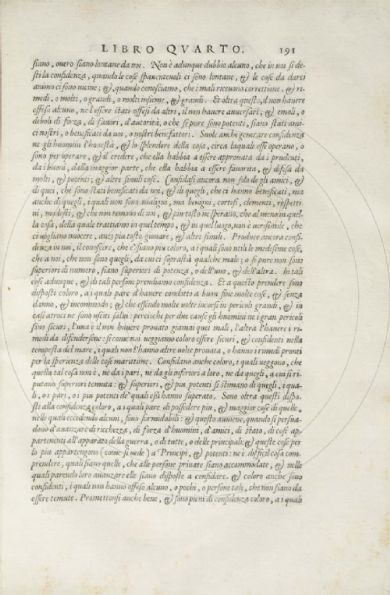 LIBRO QVARTO. 191
siano, overo siano lontane da noi. Non è adunque dubbio alcuno, che in noi si de-
sti la confidenza, quando le cose spauentevoli ci sono lontane, & le cose da darci
animo ci sono vicine; &, quando conosciamo, che i mali riceuano correttione, & ri-
medi, o molti, o grandi, o molti insieme, & grandi. Et oltra questo, il non hauere
offeso alcuno, ne l'essere stati offesi da altri, il non hauere auuersari, & emoli, o
deboli di forza, di fauori, d'autorità, o che se pure sono potenti, siano stati ami-
ci nostri, o beneficati da noi, o nostri benefattori. Suole anchi generare confidenza
ne gli huomini l'honestà, & lo splendore della cosa, circa laquale essi operano, o
sono per operare, & il credere, che ella habbia a essere approuata da i prudenti,
da i buoni, dalla maggior parte, che ella habbia a essere fauorita, & difesa da
molti, & potenti; & altre simili cose. Confidasi ancora non solo de gli amici, &
di quei, che sono stati beneficati da noi, & di quegli, che ci hanno beneficati, ma
anche di quegli, i quali non siano maligni, ma benigni, cortesi, clementi, rispetti-
ui, modesti, & che non temino di noi, & piu tosto in sperare, che al meno in quel-
la cosa, della quale trattiamo in quel tempo, & in quel luogo, non è uerisimile, che
ci vogliano nuocere, anzi piu tosto giouare, & altre simili. Produce ancora confi-
denza in noi, il conoscere, che ci siano piu coloro, a i quali sono utili le medesime cose,
che a noi, che non sono quegli, da cui ci soprasta qualche mali; o se pure non sono
superiori di numero, siano superiori di potenza, o dell'uno, & dell'altra. In tali
cose adunque, & di tali persone prendiamo confidenza. Et a questo prendere sono
disposti coloro, a i quali pare d'hauere condotto a buon fine molte cose, & senza
danno, & incommodo; & che essendo entrati molte uolte in cose pericoli grandi, & in
casi atroci ne sono usciti salui: percioche per due cause gli huomini ne i gran pericoli
sono sicuri, l'una è il non hauere prouato giamai quei mali, l'altra l'hauere i ri-
medi da difendersene: si come noi ueggiamo coloro essere sicuri, & confidenti nella
tempesta del mare, i quali non l'hanno altre uolte prouata, o hanno i rimedi pronti
per la sperienza delle cose maritime. Confidano anche coloro, i quali ueggono, che
quella tal cosa non è, ne da i pari, ne da gli inferiori a loro, ne da quegli, a cui si ri-
putano superiori temuta: & superiori, & piu potenti si stimano di quegli, i qua-
li, o i pari, o i piu potenti de' quali essi hanno superato. Sono oltra questi dispo-
sti alla confidenza coloro, a i quali pare di possedere piu, & maggior cose di quelle,
nelle quali eccedendo alcuni, sono formidabili: & questo auuiene, quando si persua-
dono d'auanzare di ricchezza, di forza d'huomini, d'amici, di stato, di cose ap-
partenenti all'apparato della guerra, o di tutte, o delle principali: & queste cose per
lo piu appartengono (come si uede) a' Principi, & potenti: ne è difficil cosa com-
prendere, quali siano quelle, che alle persone priuate siano accommodate, & nelle
quali parendo loro auanzare elle siano disposte a confidare, & coloro anche sono
confidenti, i quali non hanno offeso alcuno, o pochi, o persone tali, che non siano da
essere temute. Promettonsi anche bene, & sono pieni di confidenza coloro, a i quali